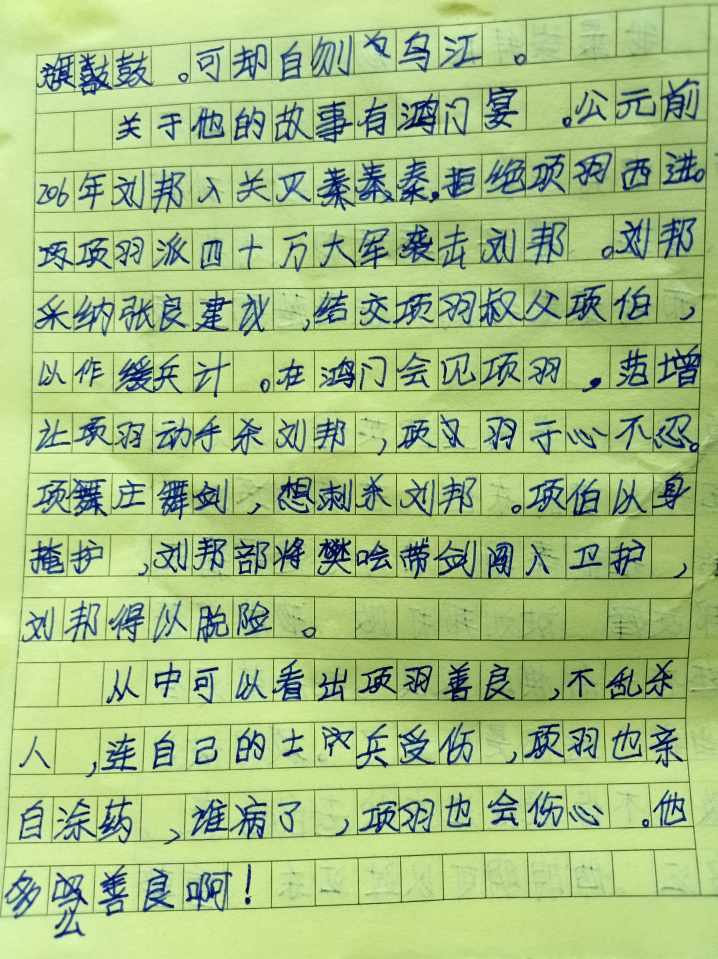 旗鼓鼓。可却自刎乌江。
关于他的故事有鸿门宴。公元前
206年刘邦入关灭秦,拒绝项羽西进。
项羽派四十万大军袭击刘邦。刘邦
采纳张良建议,结交项羽叔父项伯,
以作缓兵计。在鸿门会见项羽,范增
让项羽动手杀刘邦,项羽于心不忍。
项庄舞剑,想刺杀刘邦。项伯以身
掩护,刘邦部将樊哙带剑闯入卫护,
刘邦得以脱险。
从中可以看出项羽善良,不乱杀
人,连自己的士兵受伤,项羽也亲
自涂药,谁病了,项羽也会伤心。他
多么善良啊!